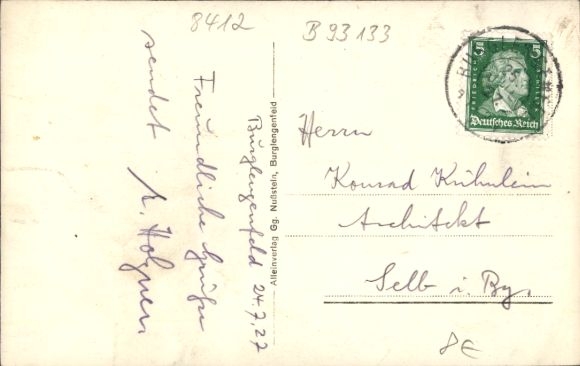 8412
B 93 133
Burglengenfeld 24.7.27
Freundliche Grüße
sendet
Allleinverlag Gg. Nußstein, Burglengenfeld
Herrn
Konrad Kühnlein
Architekt
Selb i. By.
5 5
FRIEDRICH
Deutsches Reich
8€